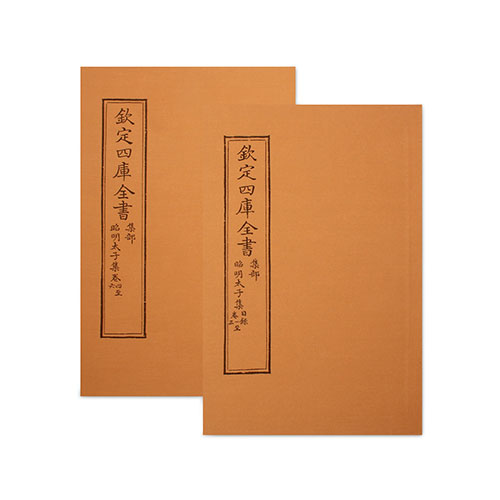 欽定四庫全書
集部
昭明太子集卷四至六
欽定四庫全書
集部
昭明太子集目錄卷一至三